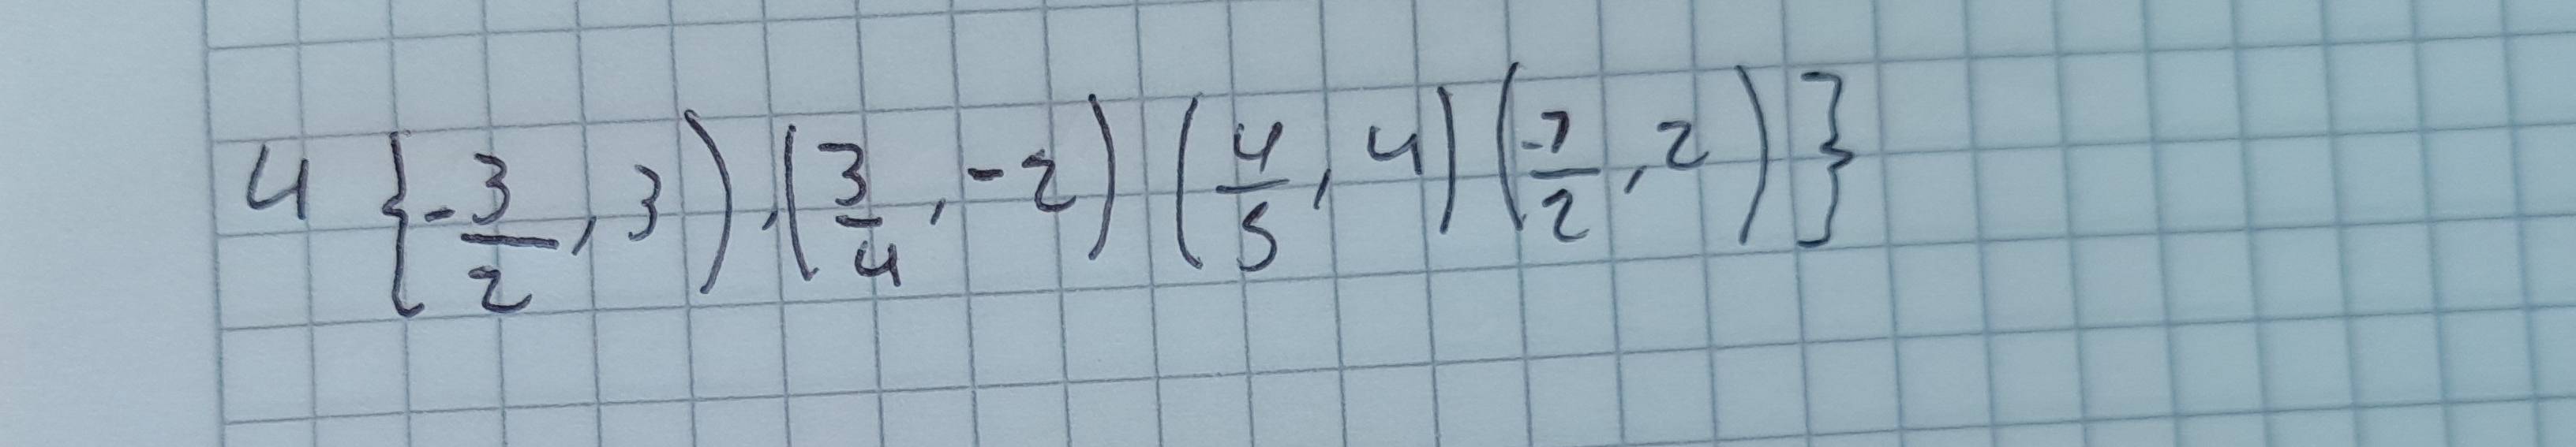 4 {-3/2, 3), (3/4, -2) (4/5, 4) (-7/2, 2)}